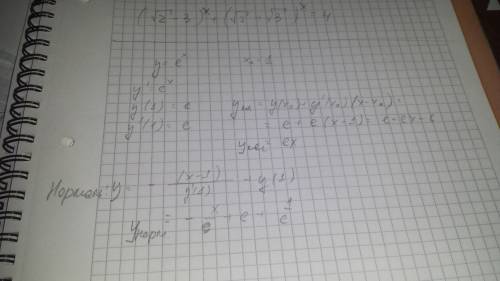 (√2 - 3)ˣ + (√2 - √3)ˣ = 4
y = eˣ x₀ = 1
y' = eˣ
y(1) = e yкас = y(x₀) + y'(x₀)(x - x₀) =
y'(1) = e = e + e(x - 1) = e + ex - e
yкас = ex
Нормаль: y = - (x - 1)/y'(1) + y(1)
yнорм = - x/e + e + 1/e